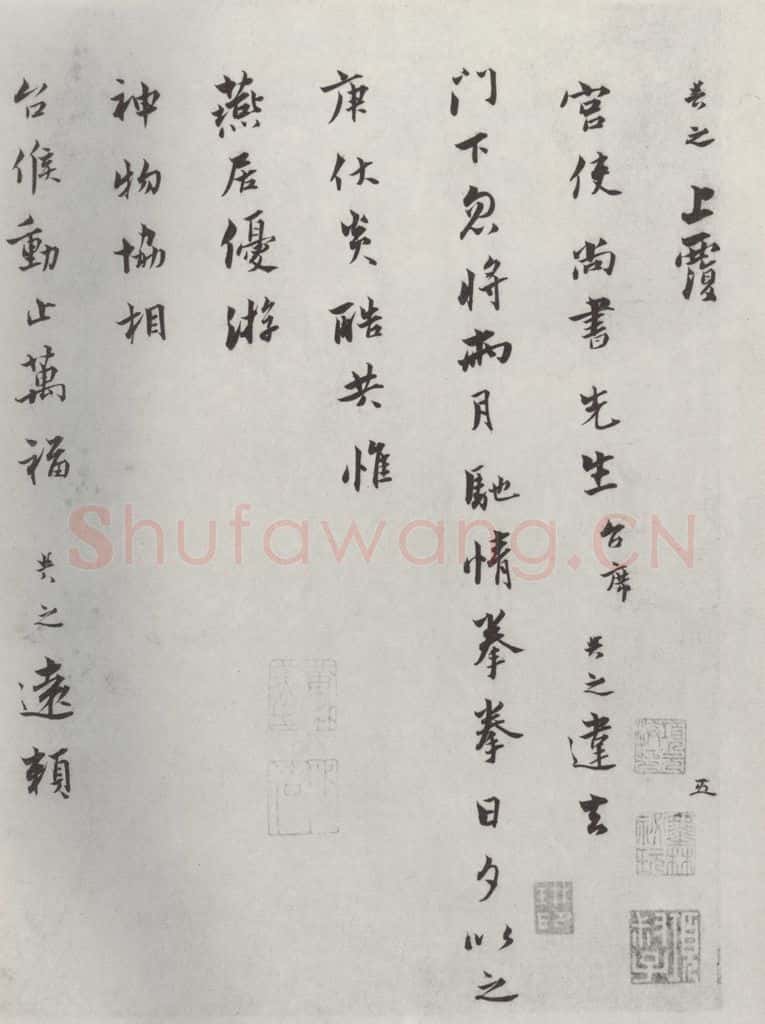 之上覆
宮使尚書先生台席 之違去
門下忽將兩月馳情拳拳日夕以之
庚伏炎酷共惟
燕居優游
神物協相
台候動止萬福 之遠賴
五
墨林祕玩
Shufawang.CN